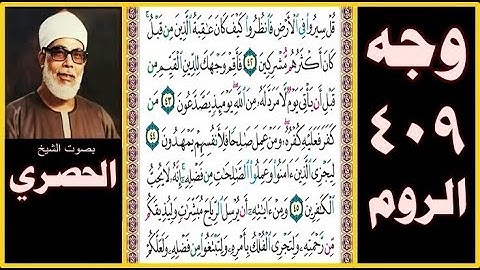 وجه
٤٠٩
الروم
قُلْ سِيرُوا۟ فِى ٱلْأَرْضِ فَٱنظُرُوا۟ كَيْفَ كَانَ عَـٰقِبَةُ ٱلَّذِينَ مِن قَبْلُ ۚ
كَانَ أَكْثَرُهُم مُّشْرِكِينَ ٤٢ فَأَقِمْ وَجْهَكَ لِلدِّينِ ٱلْقَيِّمِ مِن
قَبْلِ أَن يَأْتِىَ يَوْمٌ لَّا مَرَدَّ لَهُۥ مِنَ ٱللَّهِ ۖ يَوْمَئِذٍ يَصَّدَّعُونَ ٤٣ مَن
كَفَرَ فَعَلَيْهِ كُفْرُهُۥ ۖ وَمَنْ عَمِلَ صَـٰلِحًا فَلِأَنفُسِهِمْ يَمْهَدُونَ ٤٤
لِيَجْزِىَ ٱلَّذِينَ ءَامَنُوا۟ وَعَمِلُوا۟ ٱلصَّـٰلِحَـٰتِ مِن فَضْلِهِۦٓ ۚ إِنَّهُۥ لَا يُحِبُّ
ٱلْكَـٰفِرِينَ ٤٥ وَمِنْ ءَايَـٰتِهِۦٓ أَن يُرْسِلَ ٱلرِّيَاحَ مُبَشِّرَٰتٍ وَلِيُذِيقَكُم
مِّن رَّحْمَتِهِۦ وَلِتَجْرِىَ ٱلْفُلْكُ بِأَمْرِهِۦ وَلِتَبْتَغُوا۟ مِن فَضْلِهِۦ وَلَعَلَّكُمْ
بصوت الشيخ
الحصري